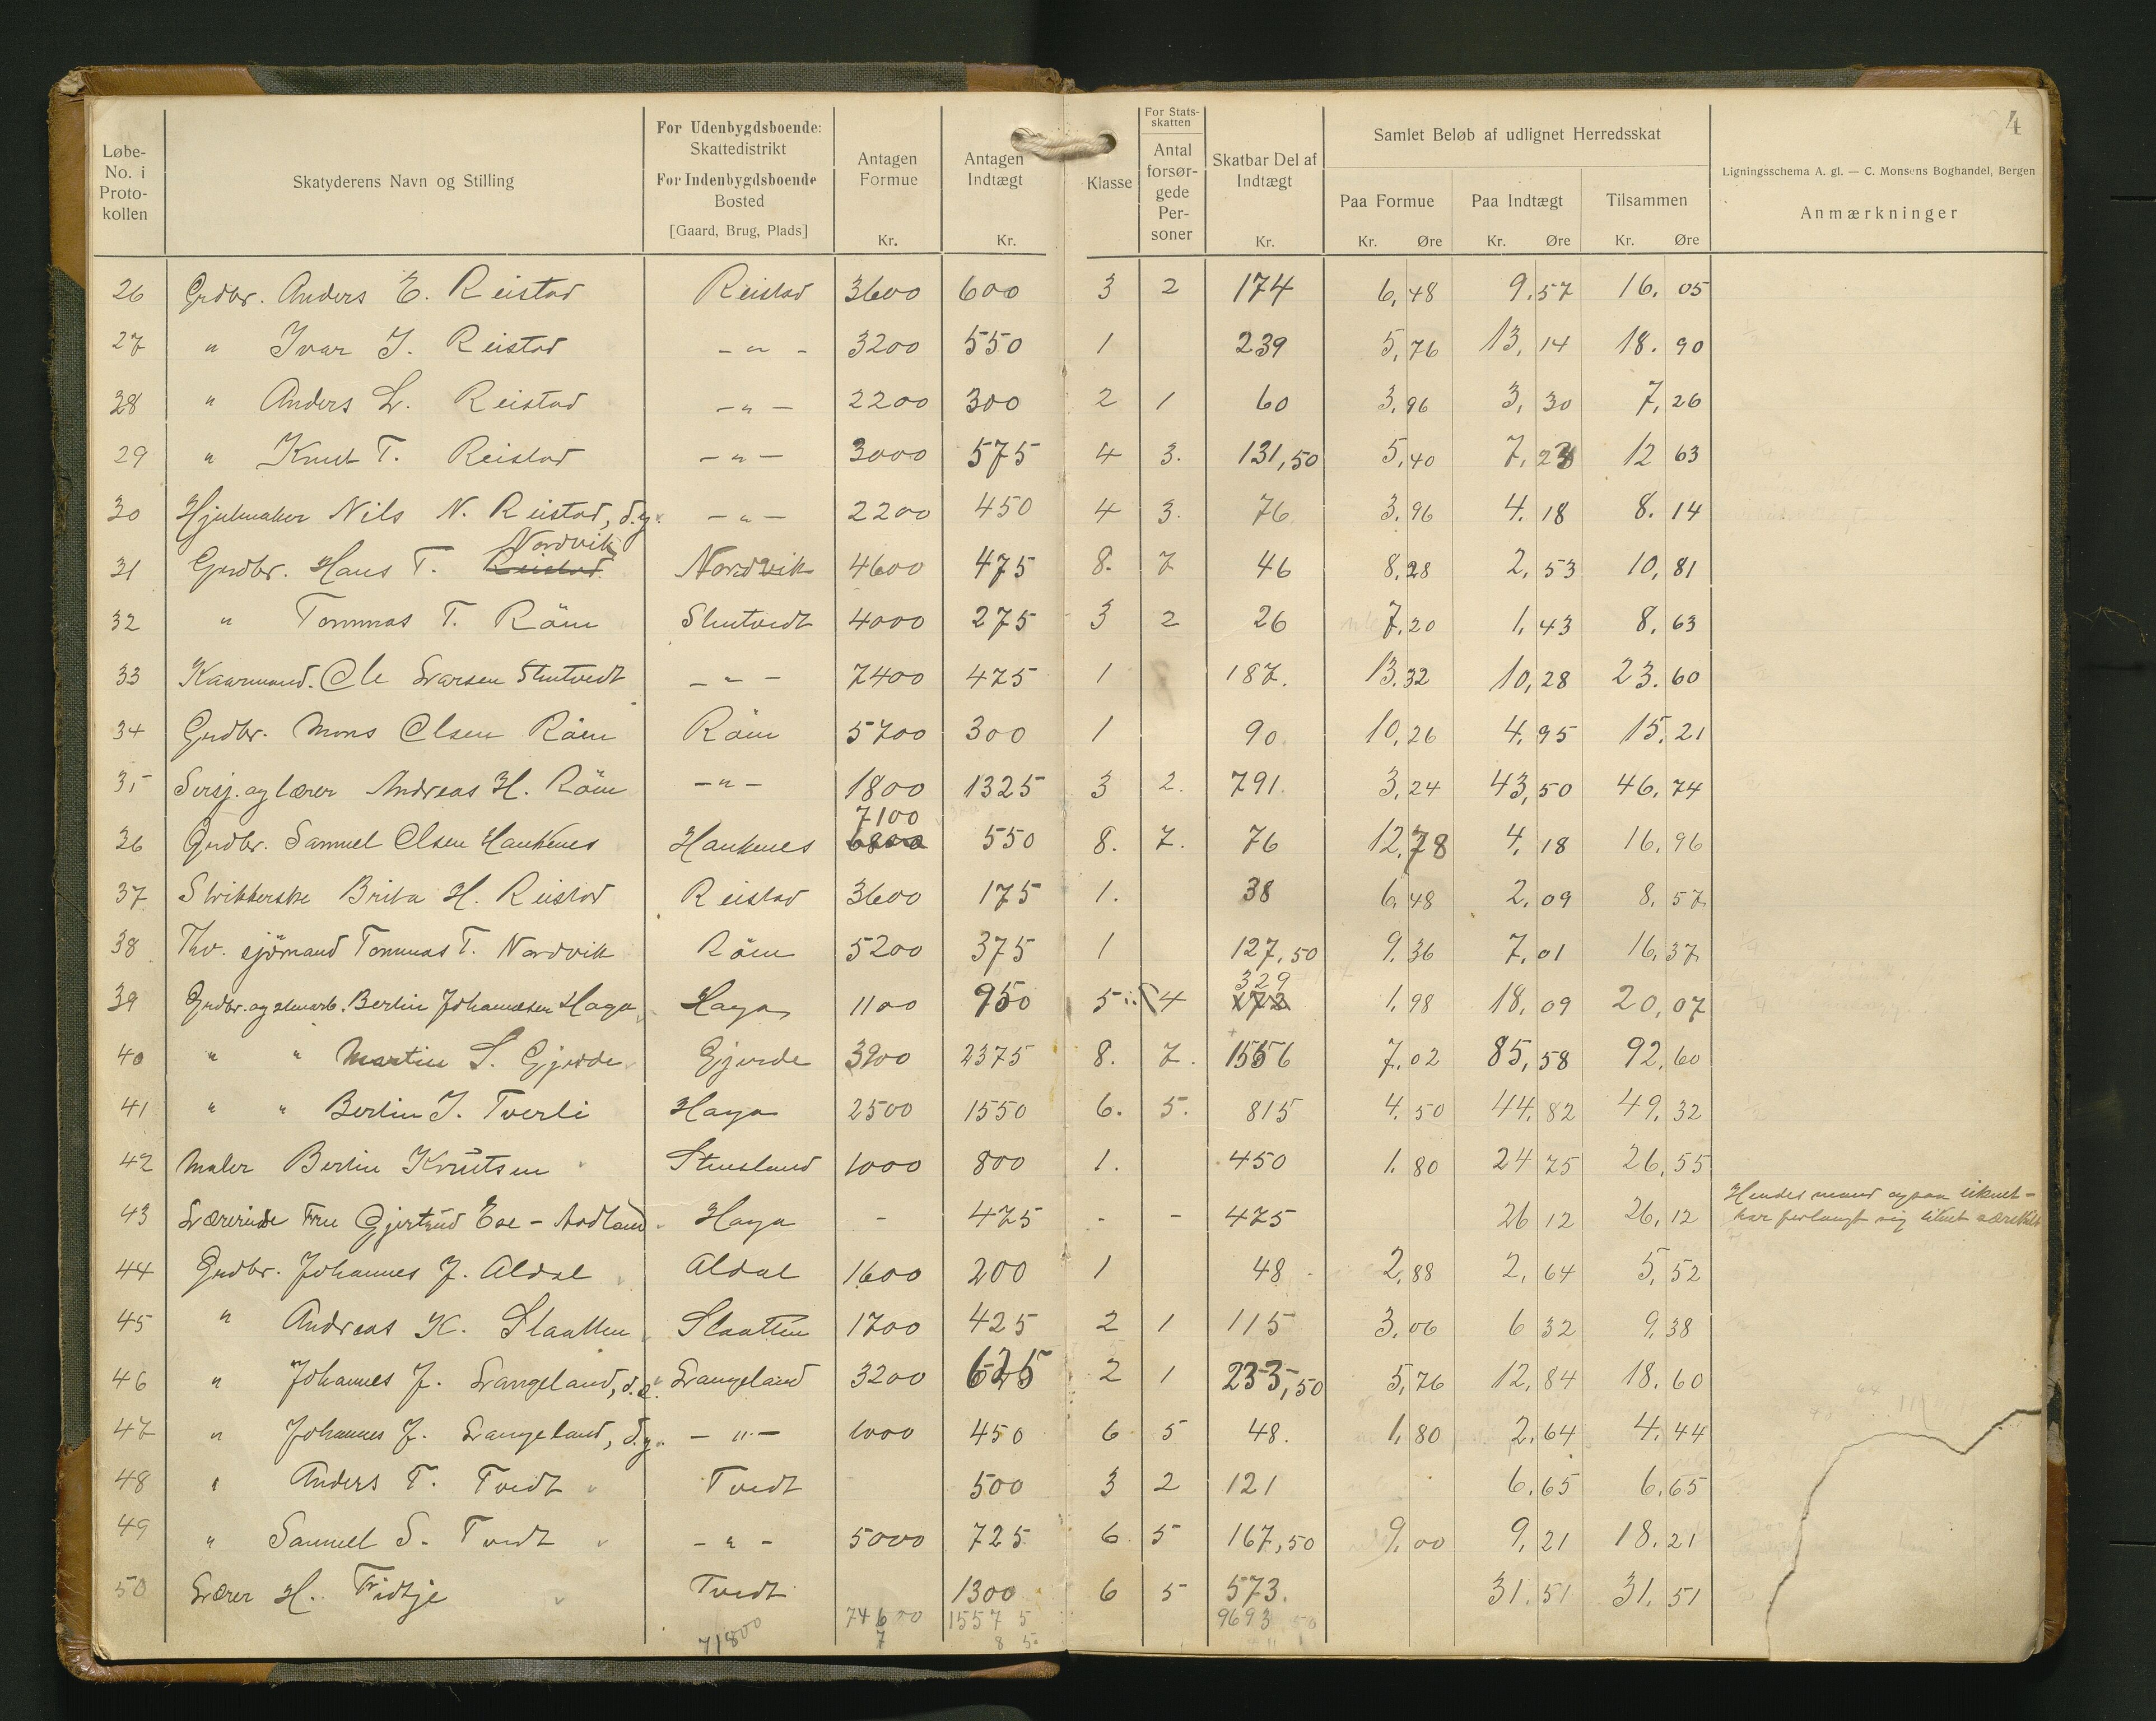 4
Løbe-No. i Proto-kollen | Skatyderens Navn og Stilling | For Udenbygdsboende: Skattedistrikt For Indenbygdsboende Bosted [Gaard, Brug, Plads] | Antagen Formue Kr. | Antagen Indtægt Kr. | Klasse | For Stats-skatten Antal forsør-gede Per-soner | Skatbar Del af Indtægt Kr. | Samlet Beløb af udlignet Herredsskat | Paa Formue Kr. Øre | Paa Indtægt Kr. Øre | Tilsammen Kr. Øre | Ligningsschema A. gl. — C. Monsens Boghandel, Bergen Anmærkninger
26 Grdbr. Anders E. Reistad Reistad 3600 600 3 2 174 6,48 9,57 16,05
27 " Ivar J. Reistad -"- 3200 550 1 239 5,76 13,14 18.90
28 " Anders L. Reistad -"- 2200 300 2 1 60 3,96 3,30 7,26
29 " Knut T. Reistad -"- 3000 575 4 3. 131,50 5,40 7,23 12 63
30 Hjulmaker Nils N. Reistad, d.y. -"- 2200 450 4 3. 76 3,96 4.18 8.14
Nordvik
31 Grdbr. Hans T. Reistad Nordvik 4600 475 8. 7 46 8,28 2,53 10,81
32 " Tommas T. Röm Slutvedt 4000 275 3 2 26 7,20 1,43 8,63
33 Kaarmand. Ole Larsen Slutvedt -"- 7400 475 1 187. 13.32 10,28 23.60
34 Grdbr. Mons Olsen Röm Röm 5700 300 1 90 10,26 4,95 15,21
35 og lærer Andreas H. Röm -"- 1800 1325 3 2. 791 3,24 43,50 46,74
7100
36 Grdbr. Samuel Olsen Haukenes Haukenes 6800 550 8. 7. 76 12,78 4,18 16,96
37 Strikkerske Brita H. Reistad Reistad 3600 175 1. 38 6,48 2,09 8,57
38 Thv. sjömand Tommas T. Nordvik Röm 5200 375 1 127,50 9,36 7,01 16,37
329
39 Grdbr. og stenarb. Bertin Johannesen Haga Haga 1100 950 5 4 272 1,98 18,09 20,07
40 " " Martin S. Gjerde Gjerde 3900 2375 8. 7. 1556 7,02 85,58 92,60
41 " " Bertin J. Tverli Haga 2500 1550 6. 5. 815 4,50 44,82 49,32
42 Maler Bertin Knutsen Stusland 1000 800 1. 450 1,80 24 75 26,55
43 Lærerinde Fru Gjertrud Eve - Aadland Haga - 475 - - 475 26 12 26,12 Hendes mand ogsaa liknet -
har forlangt sig liknet særskilt
44 Grdbr. Johannes J. Aldal Aldal 1600 200 1 48 2,88 2,64 5,52
45 " Andreas K. Slaatten Slaatten 1700 425 2 1 115 3,06 6 32 9,38
46 " Johannes J. Langeland, d.e. Langeland 3200 625 2 1 233,50 5,76 12,84 18.60
47 " Johannes J. Langeland, d.y. -"- 1000 450 6 5 48. 1,80 2,64 4,44
48 " Anders T. Tvedt Tvedt 500 3 2 121 6,65 6,65
49 " Samuel S. Tvedt -"- 5000 725 6 5 167,50 9,00 9,21 18.21
50 Lærer H. Fridtje Tvedt 1300 6 5 573. 31,51 31,51
71800 74600 15575 9693 50
7 8 5